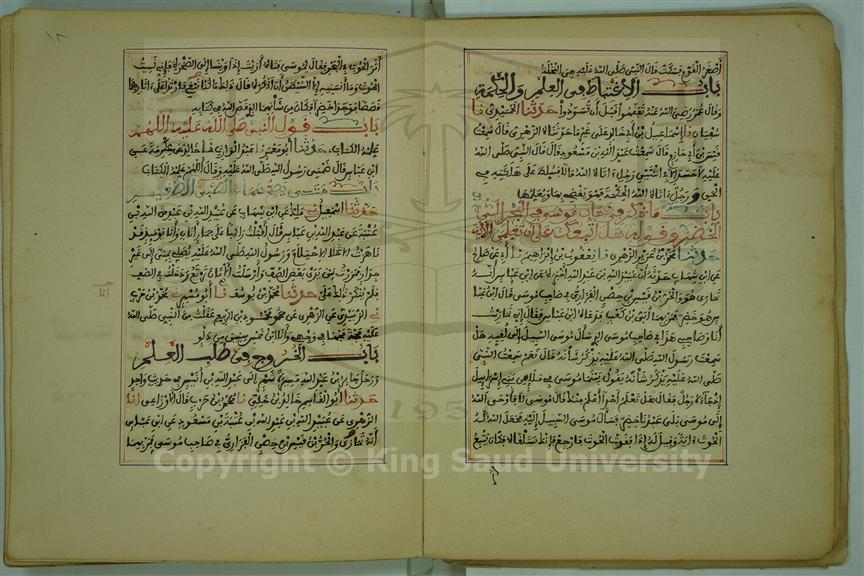 أصغر القوم فسكت قال النبي صلى الله عليه هي النخلة
باب الاغتباط في العلم والحكمة
وقال عمر رضي الله عنه تفقهوا قبل أن تسودوا حدثنا الحميدي نا
سفيان نا إسماعيل بن أبي خالد على غير ما حدثناه الزهري قال سمعت
قيس بن أبي حازم قال سمعت عبد الله بن مسعود قال قال النبي صلى الله
عليه لا حسد إلا في اثنتين رجل اتاه الله مالا فسلط على هلكته في
الحق ورجل اتاه الله الحكمة فهو يقضي بها ويعلمها
باب ما ذكر في ذهاب موسى في البحر إلى
الخضر وقوله هل اتبعك على أن تعلمني الآية
حدثنا محمد بن غرير الزهري نا يعقوب بن إبراهيم نا أبي عن صالح
عن ابن شهاب حدثه أن عبيد الله بن عبد الله أخبره عن ابن عباس أنه
تمارى هو والحر بن قيس بن حصن الفزاري في صاحب موسى قال ابن عباس
هو خضر فمر بهما أبي بن كعب فدعاه ابن عباس فقال إني تماريت
أنا وصاحبي هذا في صاحب موسى الذي سأل موسى السبيل إلى لقيه هل
سمعت رسول الله صلى الله عليه يذكر شأنه قال نعم سمعت النبي
صلى الله عليه يذكر شأنه يقول بينما موسى في ملإ من بني إسرائيل
إذ جاءه رجل فقال هل تعلم أحدا أعلم منك قال موسى لا فأوحى الله
إلى موسى بلى عبدنا خضر فسأل موسى السبيل إليه فجعل الله له
الحوت آية وقيل له إذا فقدت الحوت فارجع فإنك ستلقاه فكان يتبع
١٢
أثر الحوت في البحر فقال لموسى فتاه أرأيت إذ أوينا إلى الصخرة فإني نسيت
الحوت وما أنسانيه إلا الشيطان أن أذكره قال ذلك ما كنا نبغ فارتدا على آثارهما
قصصا فوجدا خضرا فكان من شأنهما الذي قص الله في كتابه
باب قول النبي صلى الله عليه اللهم
علمه الكتاب حدثنا أبو معمر نا عبد الوارث نا خالد عن عكرمة عن
ابن عباس قال ضمني رسول الله صلى الله عليه وقال اللهم علمه الكتاب
باب متى يصح سماع الصبي الصغير
حدثنا إسمعيل ني ملك عن ابن شهاب عن عبيد الله بن عبد الله بن
عتبة عن عبد الله بن عباس قال أقبلت راكبا على حمار أتان وأنا يومئذ قد
ناهزت الاحتلام ورسول الله صلى الله عليه يصلي بمنى إلى غير
جدار فمررت بين يدي بعض الصف وأرسلت الأتان ترتع ودخلت في الصف
فلم ينكر ذلك علي حدثنا محمد بن يوسف نا أبو مسهر ني محمد بن حرب
ني الزبيدي عن الزهري عن محمود بن الربيع عقلت من النبي صلى الله
عليه مجة مجها في وجهي وأنا ابن خمس سنين من دلو
باب الخروج في طلب العلم
ورحل جابر بن عبد الله مسيرة شهر إلى عبد الله بن أنيس في حديث واحد
حدثنا أبو القاسم خالد بن خلي نا محمد بن حرب قال الأوزاعي انا
الزهري عن عبيد الله بن عبد الله بن عتبة بن مسعود عن ابن عباس
أنه تمارى والحر بن قيس بن حصن الفزاري في صاحب موسى فمر بهما
انا
أثر
Copyright © King Saud University
195